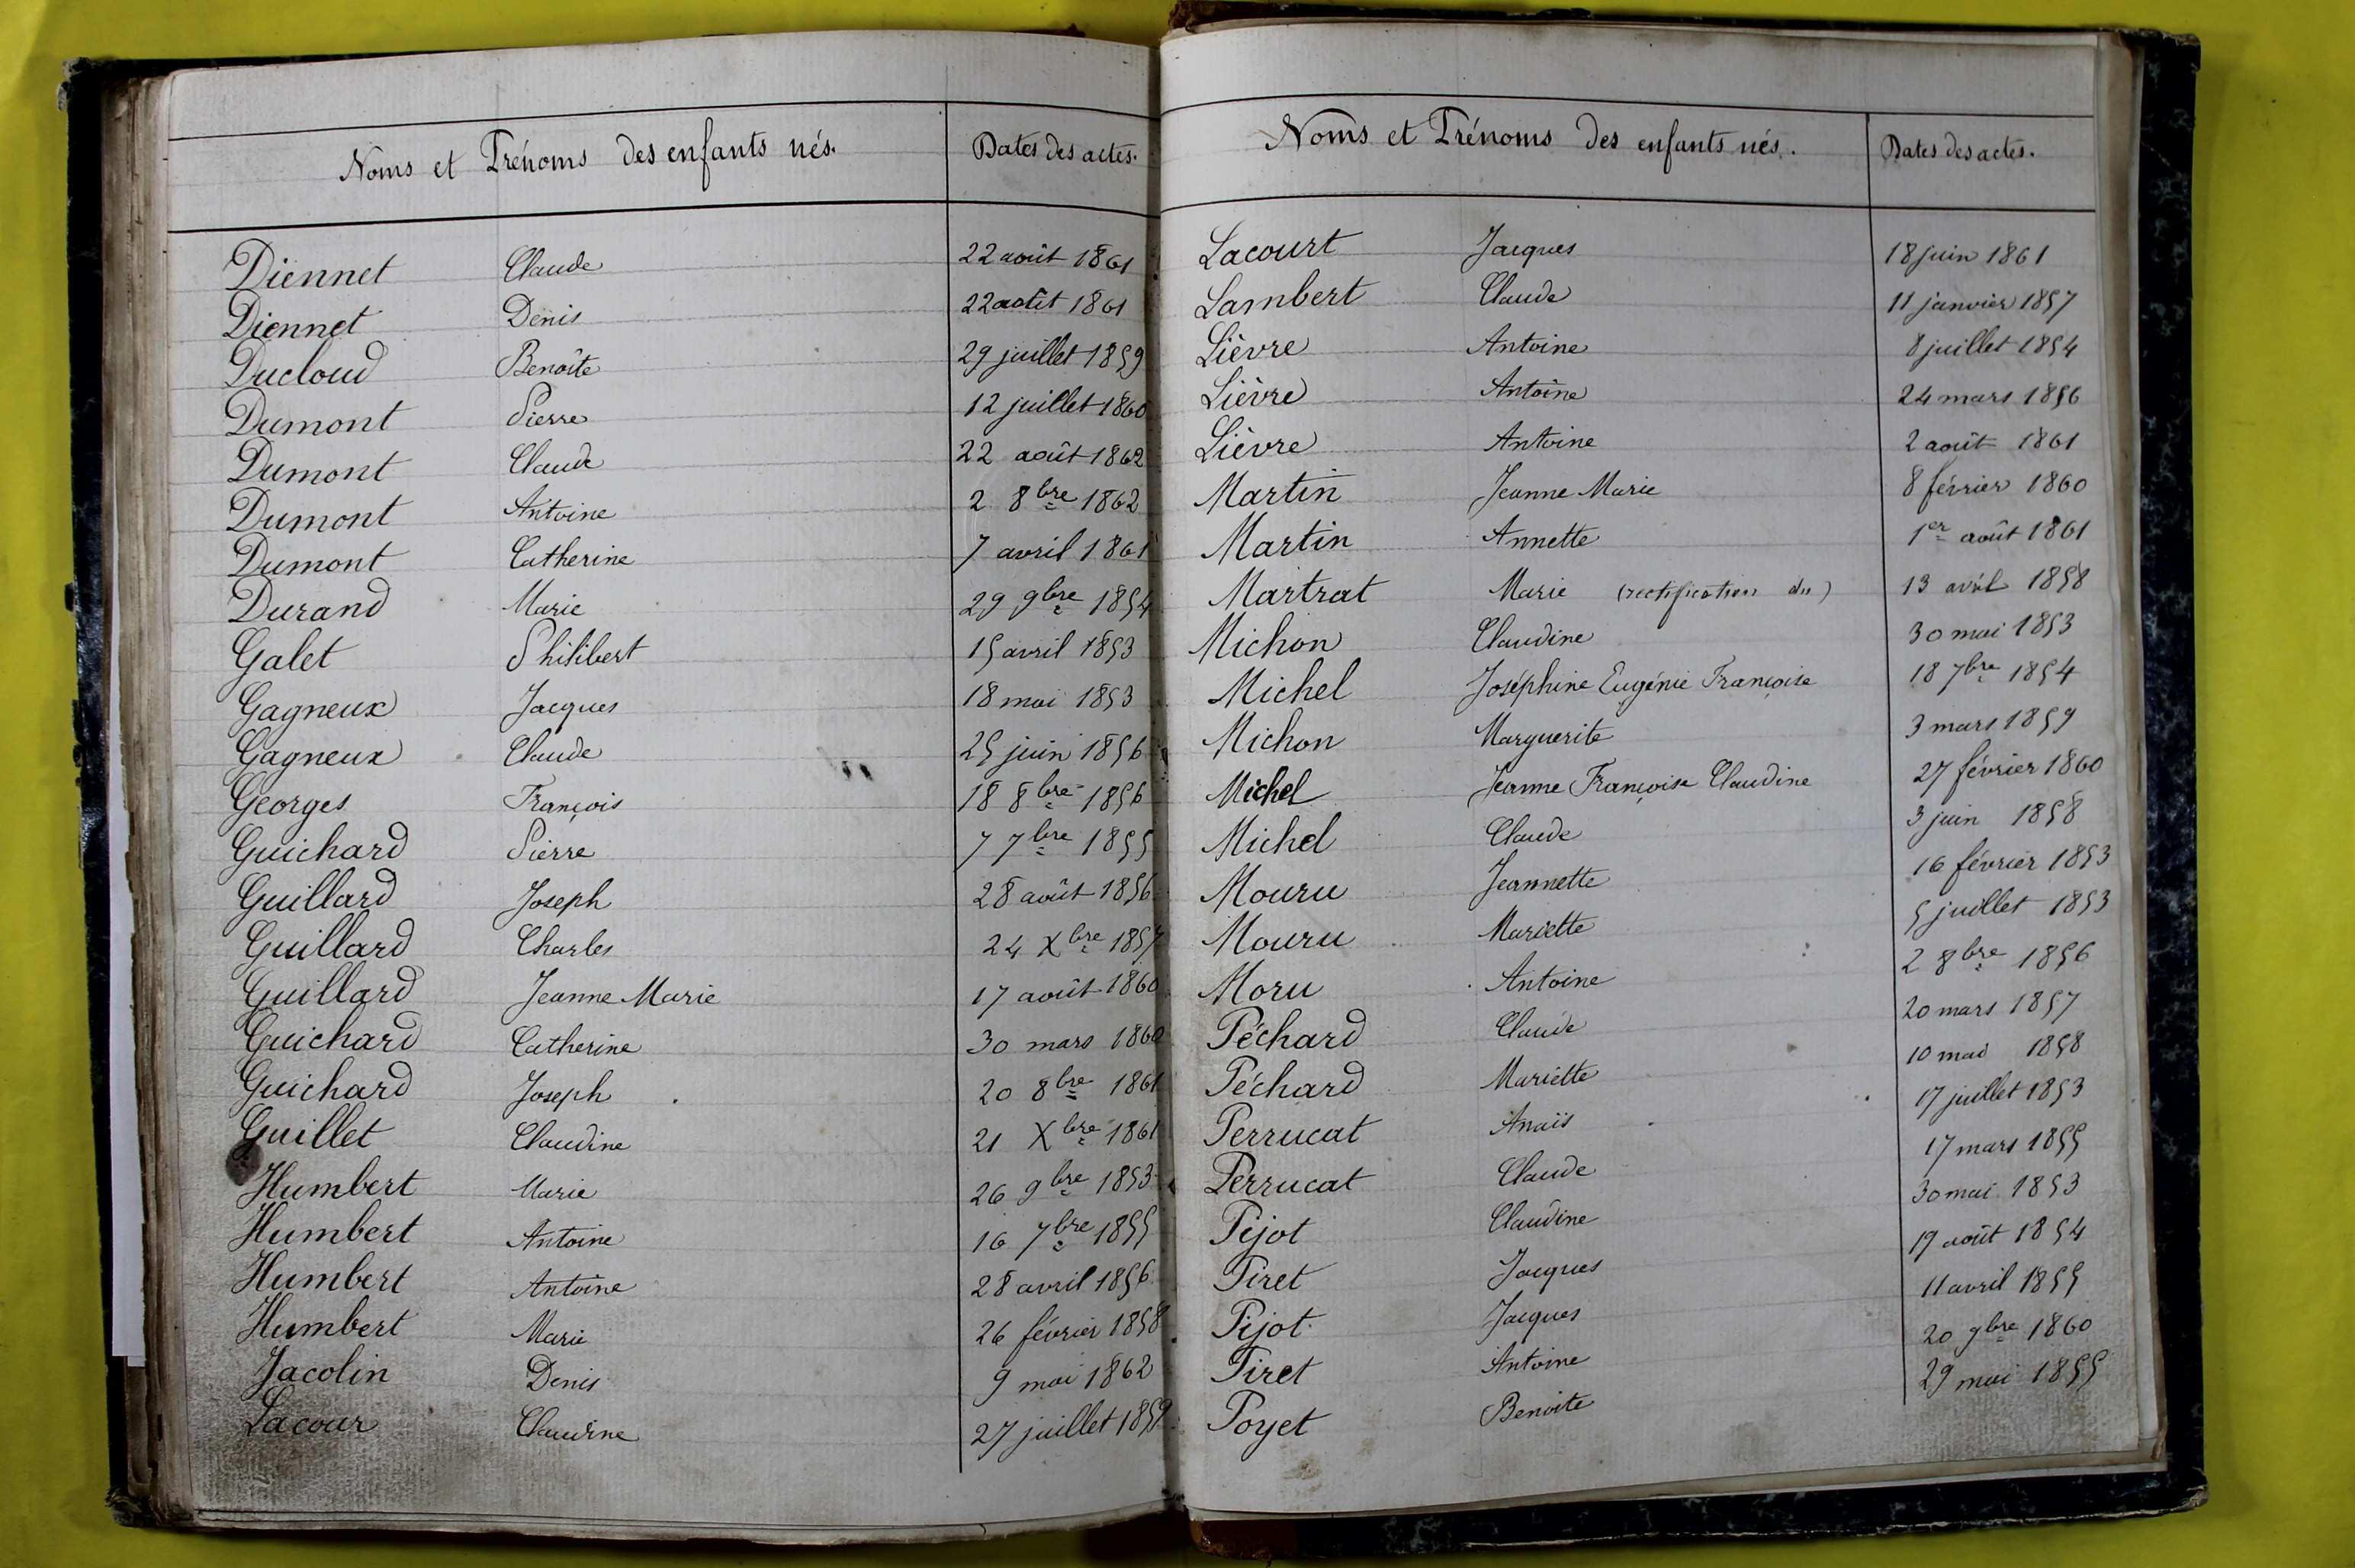 Noms et Prénoms des enfants nés. Dates des actes.
Diennet Claude 22 août 1861
Diennet Denis 22 août 1861
Ducloud Benoîte 29 juillet 1859
Dumont Pierre 12 juillet 1860
Dumont Claude 22 août 1862
Dumont Antoine 2 8bre 1862
Dumont Catherine 7 avril 1861
Durand Marie 29 9bre 1854
Galet Philibert 15 avril 1853
Gagneux Jacques 18 mai 1853
Gagneux Claude 25 juin 1856
Georges François 18 8bre 1856
Guichard Pierre 7 7bre 1855
Guillard Joseph 28 août 1856
Guillard Charles 24 Xbre 1857
Guillard Jeanne Marie 17 août 1860
Guichard Catherine 30 mars 1860
Guichard Joseph 20 8bre 1861
Guillet Claudine 21 Xbre 1861
Humbert Marie 26 9bre 1853
Humbert Antoine 16 7bre 1855
Humbert Antoine 28 avril 1856
Humbert Marie 26 février 1858
Jacolin Denis 9 mai 1862
Lacour Claudine 27 juillet 1859
Noms et Prénoms des enfants nés. Dates des actes.
Lacourt Jacques 18 juin 1861
Lambert Claude 11 janvier 1857
Lièvre Antoine 8 juillet 1854
Lièvre Antoine 24 mars 1856
Lièvre Antoine 2 août 1861
Martin Jeanne Marie 8 février 1860
Martin Annette 1er août 1861
Martrat Marie (rectification du) 13 avril 1858
Michon Claudine 30 mai 1853
Michel Joséphine Eugénie Françoise 18 7bre 1854
Michon Marguerite 3 mars 1859
Michel Jeanne Françoise Claudine 27 février 1860
Michel Claude 3 juin 1858
Mouru Jeannette 16 février 1853
Mouru Mariette 5 juillet 1853
Moru Antoine 2 8bre 1856
Péchard Claude 20 mars 1857
Péchard Mariette 10 mai 1858
Perrucat Anaïs 17 juillet 1853
Perrucat Claude 17 mars 1855
Pijot Claudine 30 mai 1853
Piret Jacques 19 août 1854
Pijot Jacques 11 avril 1855
Piret Antoine 20 9bre 1860
Poyet Benoite 29 mai 1855